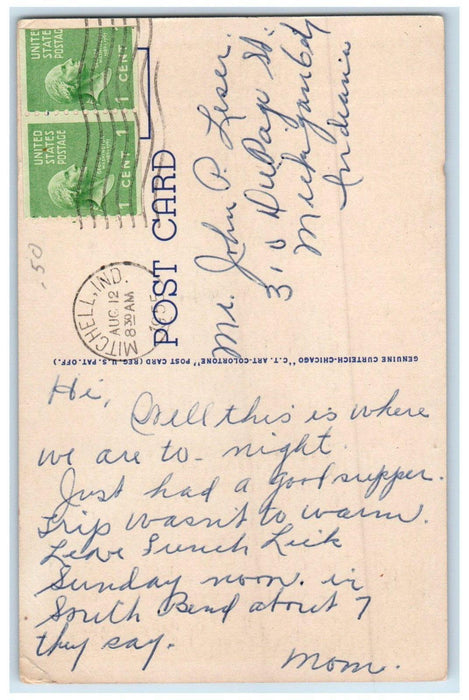 UNITED
STATES
POSTAGE
1 CENT 1
UNITED
STATES
POSTAGE
1 CENT 1
MITCHELL, IND.
AUG 12
8 30 AM
1955
.50
POST CARD
Mr. John P. Leser.
DuPage St.
Michigan City
Indiana
GENUINE CURTEICH-CHICAGO "C.T. ART-COLORTONE" POST CARD (REG. U.S. PAT. OFF.)
Hi,
Well this is where
we are to-night.
Just had a good supper.
Trip wasn't to warm.
Leave French Lick
Sunday noon. in
South Bend about 7
they say.
Mom.